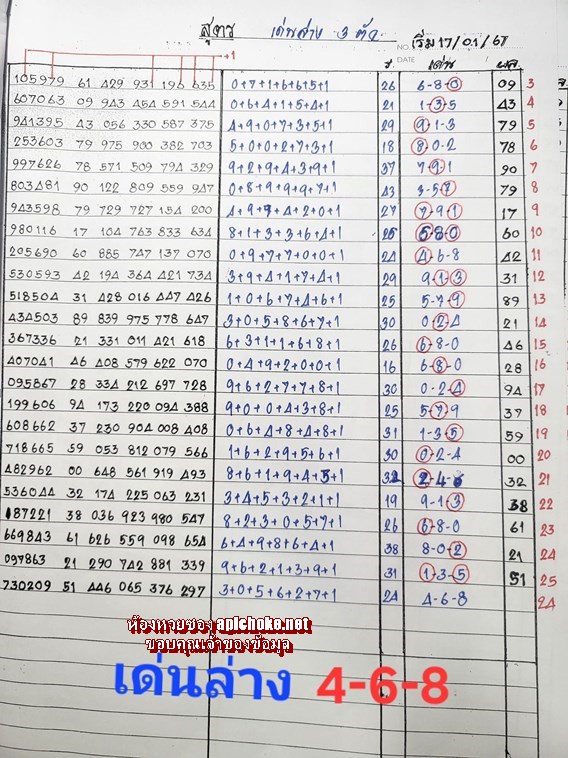 สูตร เด่นล่าง 3 ตัว
NO. เริ่ม 17/01/67
+1 ร. DATE เด่น ผล.
105979 61 429 931 196 635 0+7+1+6+6+5+1 26 6-8-0 09 3
607063 09 943 454 591 544 0+6+4+1+5+4+1 21 1-3-5 43 4
941395 43 056 330 587 375 4+9+0+7+3+5+1 29 9-1-3 79 5
253603 79 975 900 382 703 5+0+0+2+7+3+1 18 8-0-2 78 6
997626 78 571 509 794 329 9+2+9+4+3+9+1 37 7-9-1 90 7
803481 90 122 809 559 947 0+8+9+9+9+7+1 43 3-5-7 79 8
943598 79 729 727 154 200 4+9+7+4+2+0+1 27 7-9-1 17 9
980116 17 104 763 833 634 8+1+3+3+6+4+1 26 6-8-0 60 10
205690 60 885 747 137 070 0+9+7+7+0+0+1 24 4-6-8 42 11
530593 42 194 364 421 734 3+9+4+1+7+4+1 29 9-1-3 31 12
518504 31 428 016 447 426 1+0+6+7+4+6+1 25 5-7-9 89 13
434503 89 839 975 778 647 3+0+5+8+6+7+1 30 0-2-4 21 14
367336 21 331 011 421 618 6+3+1+1+6+8+1 26 6-8-0 46 15
407041 46 408 579 622 070 0+4+9+2+0+0+1 16 6-8-0 28 16
095867 28 334 212 697 728 9+6+2+7+7+8+1 30 0-2-4 94 17
199606 94 173 220 094 388 9+0+0+4+3+8+1 25 5-7-9 37 18
608662 37 230 904 008 408 0+6+4+8+4+8+1 31 1-3-5 59 19
718665 59 053 812 079 566 1+6+2+9+5+6+1 30 0-2-4 00 20
482962 00 648 561 919 493 8+6+1+9+4+3+1 32 2-4-6 32 21
536044 32 174 225 063 231 3+4+5+3+2+1+1 19 9-1-3 38 22
187221 38 036 923 980 547 8+2+3+0+5+7+1 26 6-8-0 61 23
669843 61 626 559 098 654 6+4+9+8+6+4+1 38 8-0-2 21 24
097863 21 290 742 881 339 9+6+2+1+3+9+1 31 1-3-5 51 25
730209 51 446 065 376 297 3+0+5+6+2+7+1 24 4-6-8 24
ห้องหวยซอง apichoke.net
ขอบคุณเจ้าของข้อมูล
เด่นล่าง 4-6-8